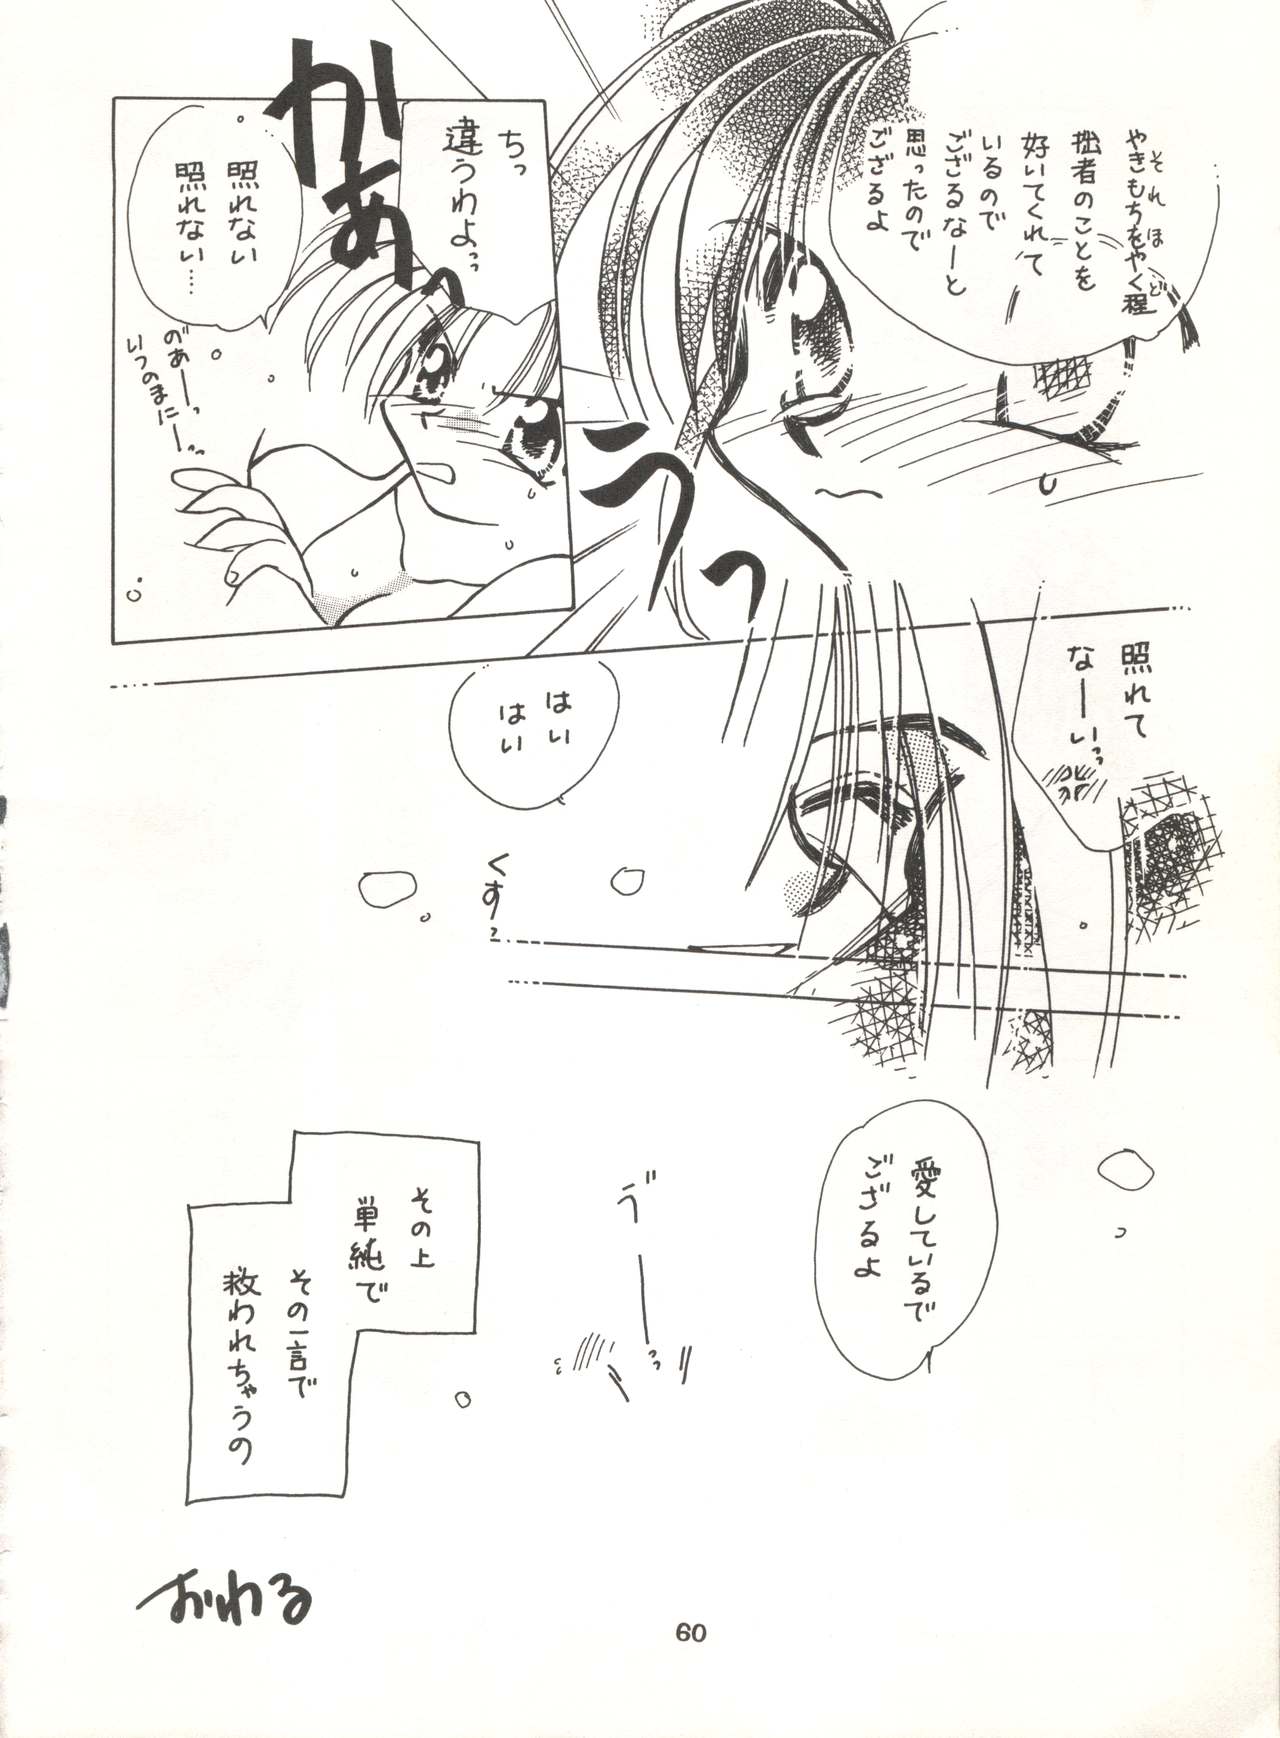 やきもちをやく程
それほど
拙者のことを
好いてくれて
いるので
ござるなーと
思ったので
ござるよ
かあ
うっ
ちっ
違うわよっっ
照れない
照れない…
のあーっ
いつのまにーっ
照れて
なーいっっ
はい
はい
くすっ
愛しているで
ござるよ
その上
単純で
その一言で
救われちゃうの
おわる
60